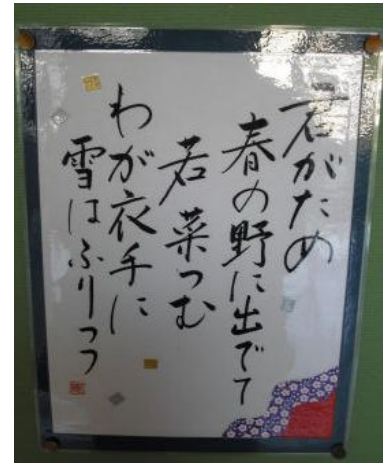 君がため
春の野に出でて
若菜つむ
わが衣手に
雪はふりつつ